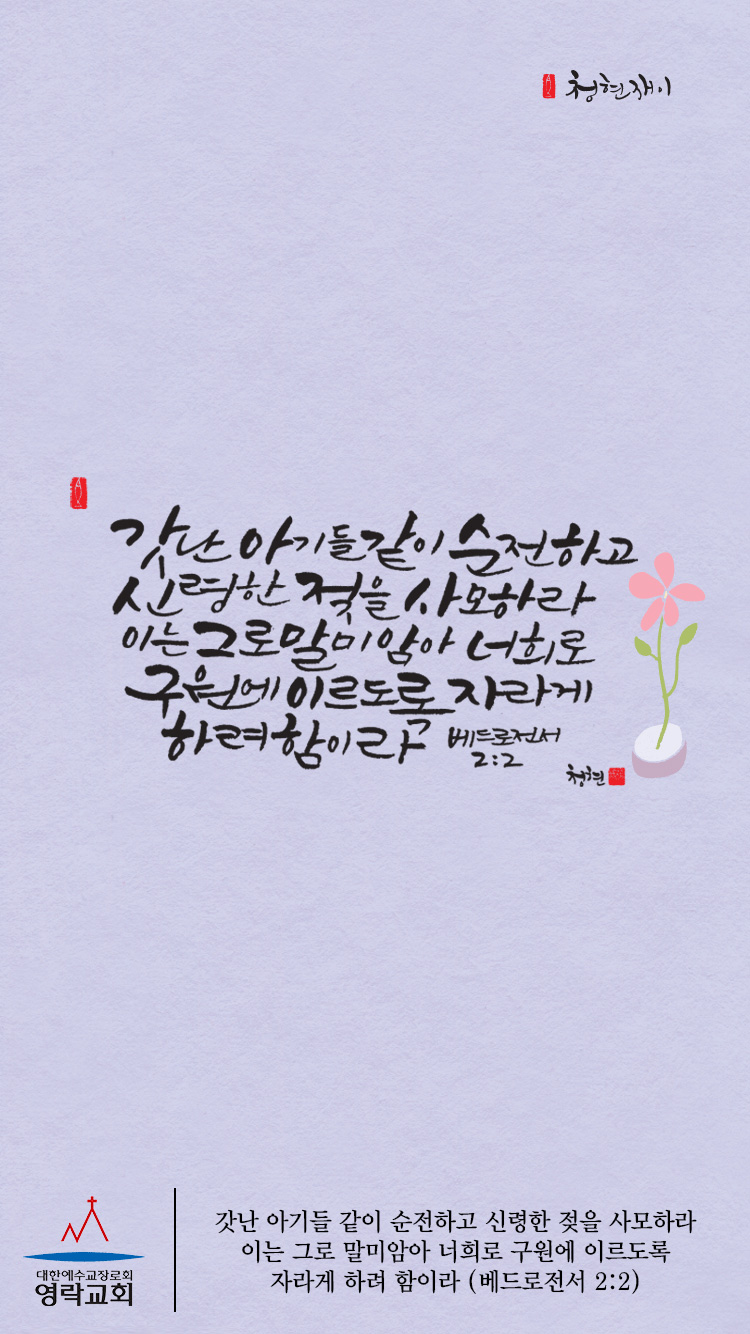 청현재이
갓난 아기들 같이 순전하고
신령한 젖을 사모하라
이는 그로 말미암아 너희로
구원에 이르도록 자라게
하려 함이라 베드로전서
2:2
청현
대한예수교장로회
영락교회
갓난 아기들 같이 순전하고 신령한 젖을 사모하라
이는 그로 말미암아 너희로 구원에 이르도록
자라게 하려 함이라 (베드로전서 2:2)